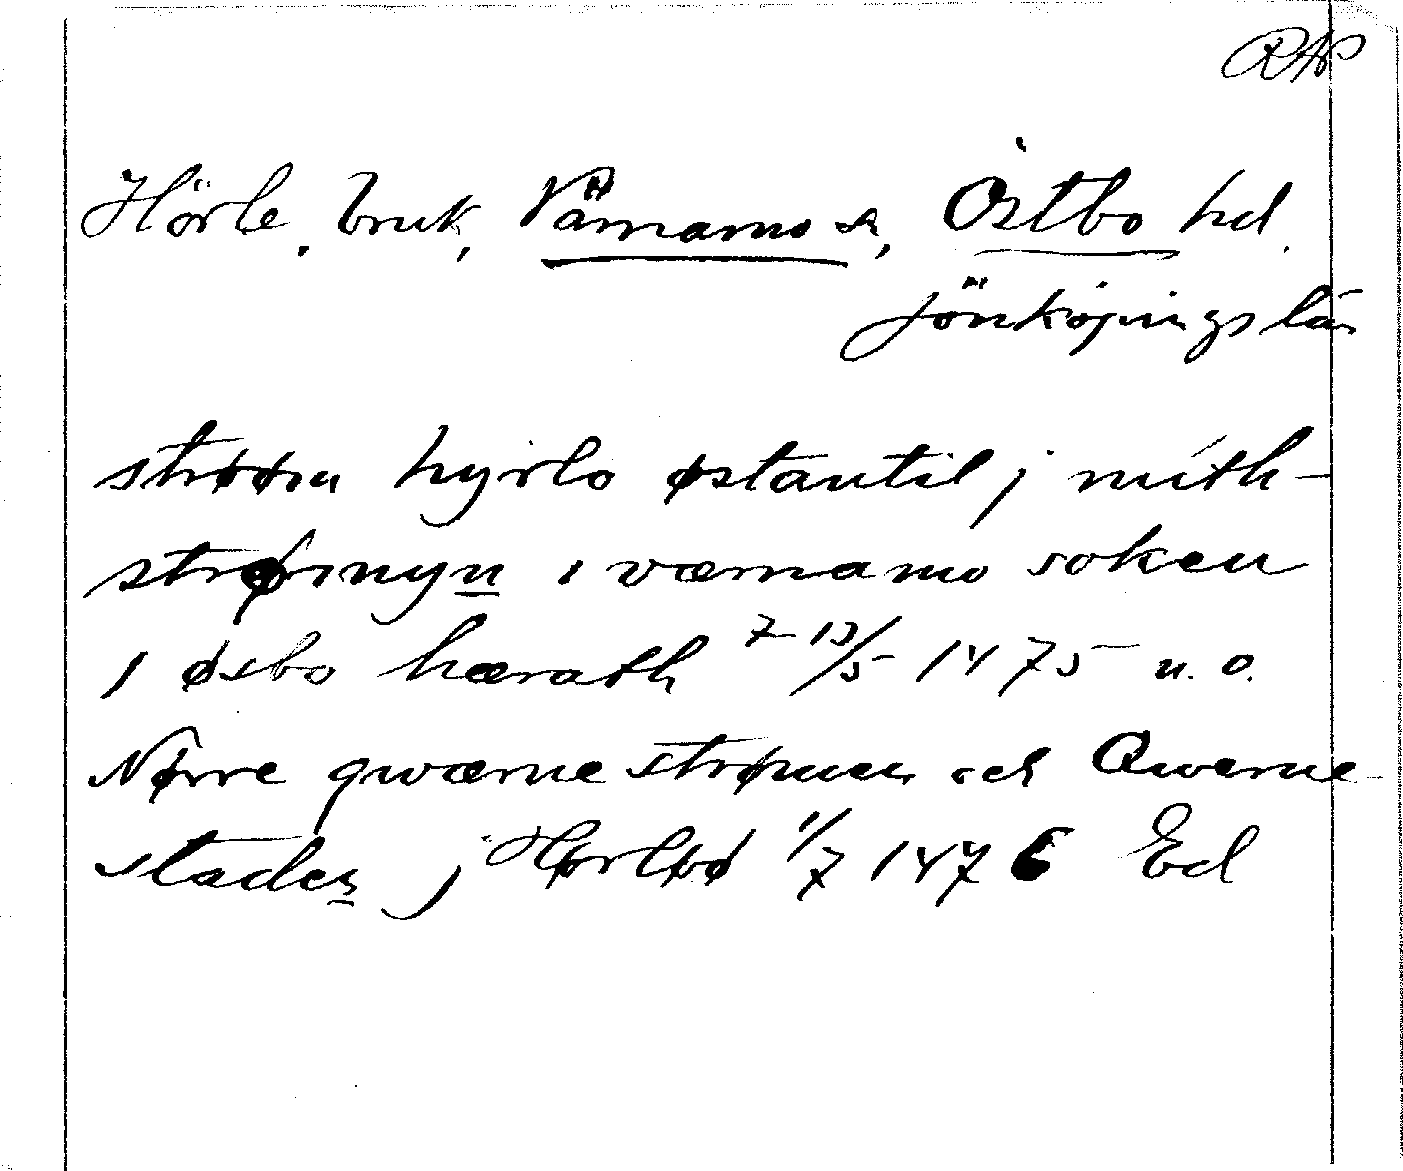 RAP
Hörle, bruk, Värnamo sn, Östbo hd.
Jönköpings län
strøøm hyrlo østantil j mith-
strømyn i værnamo soken
i øsbo hærath 7-13/5 1475 u.o.
Nørre qwærne strømen och Qwerne-
staden j Hørløø 1/7 1476 Ed